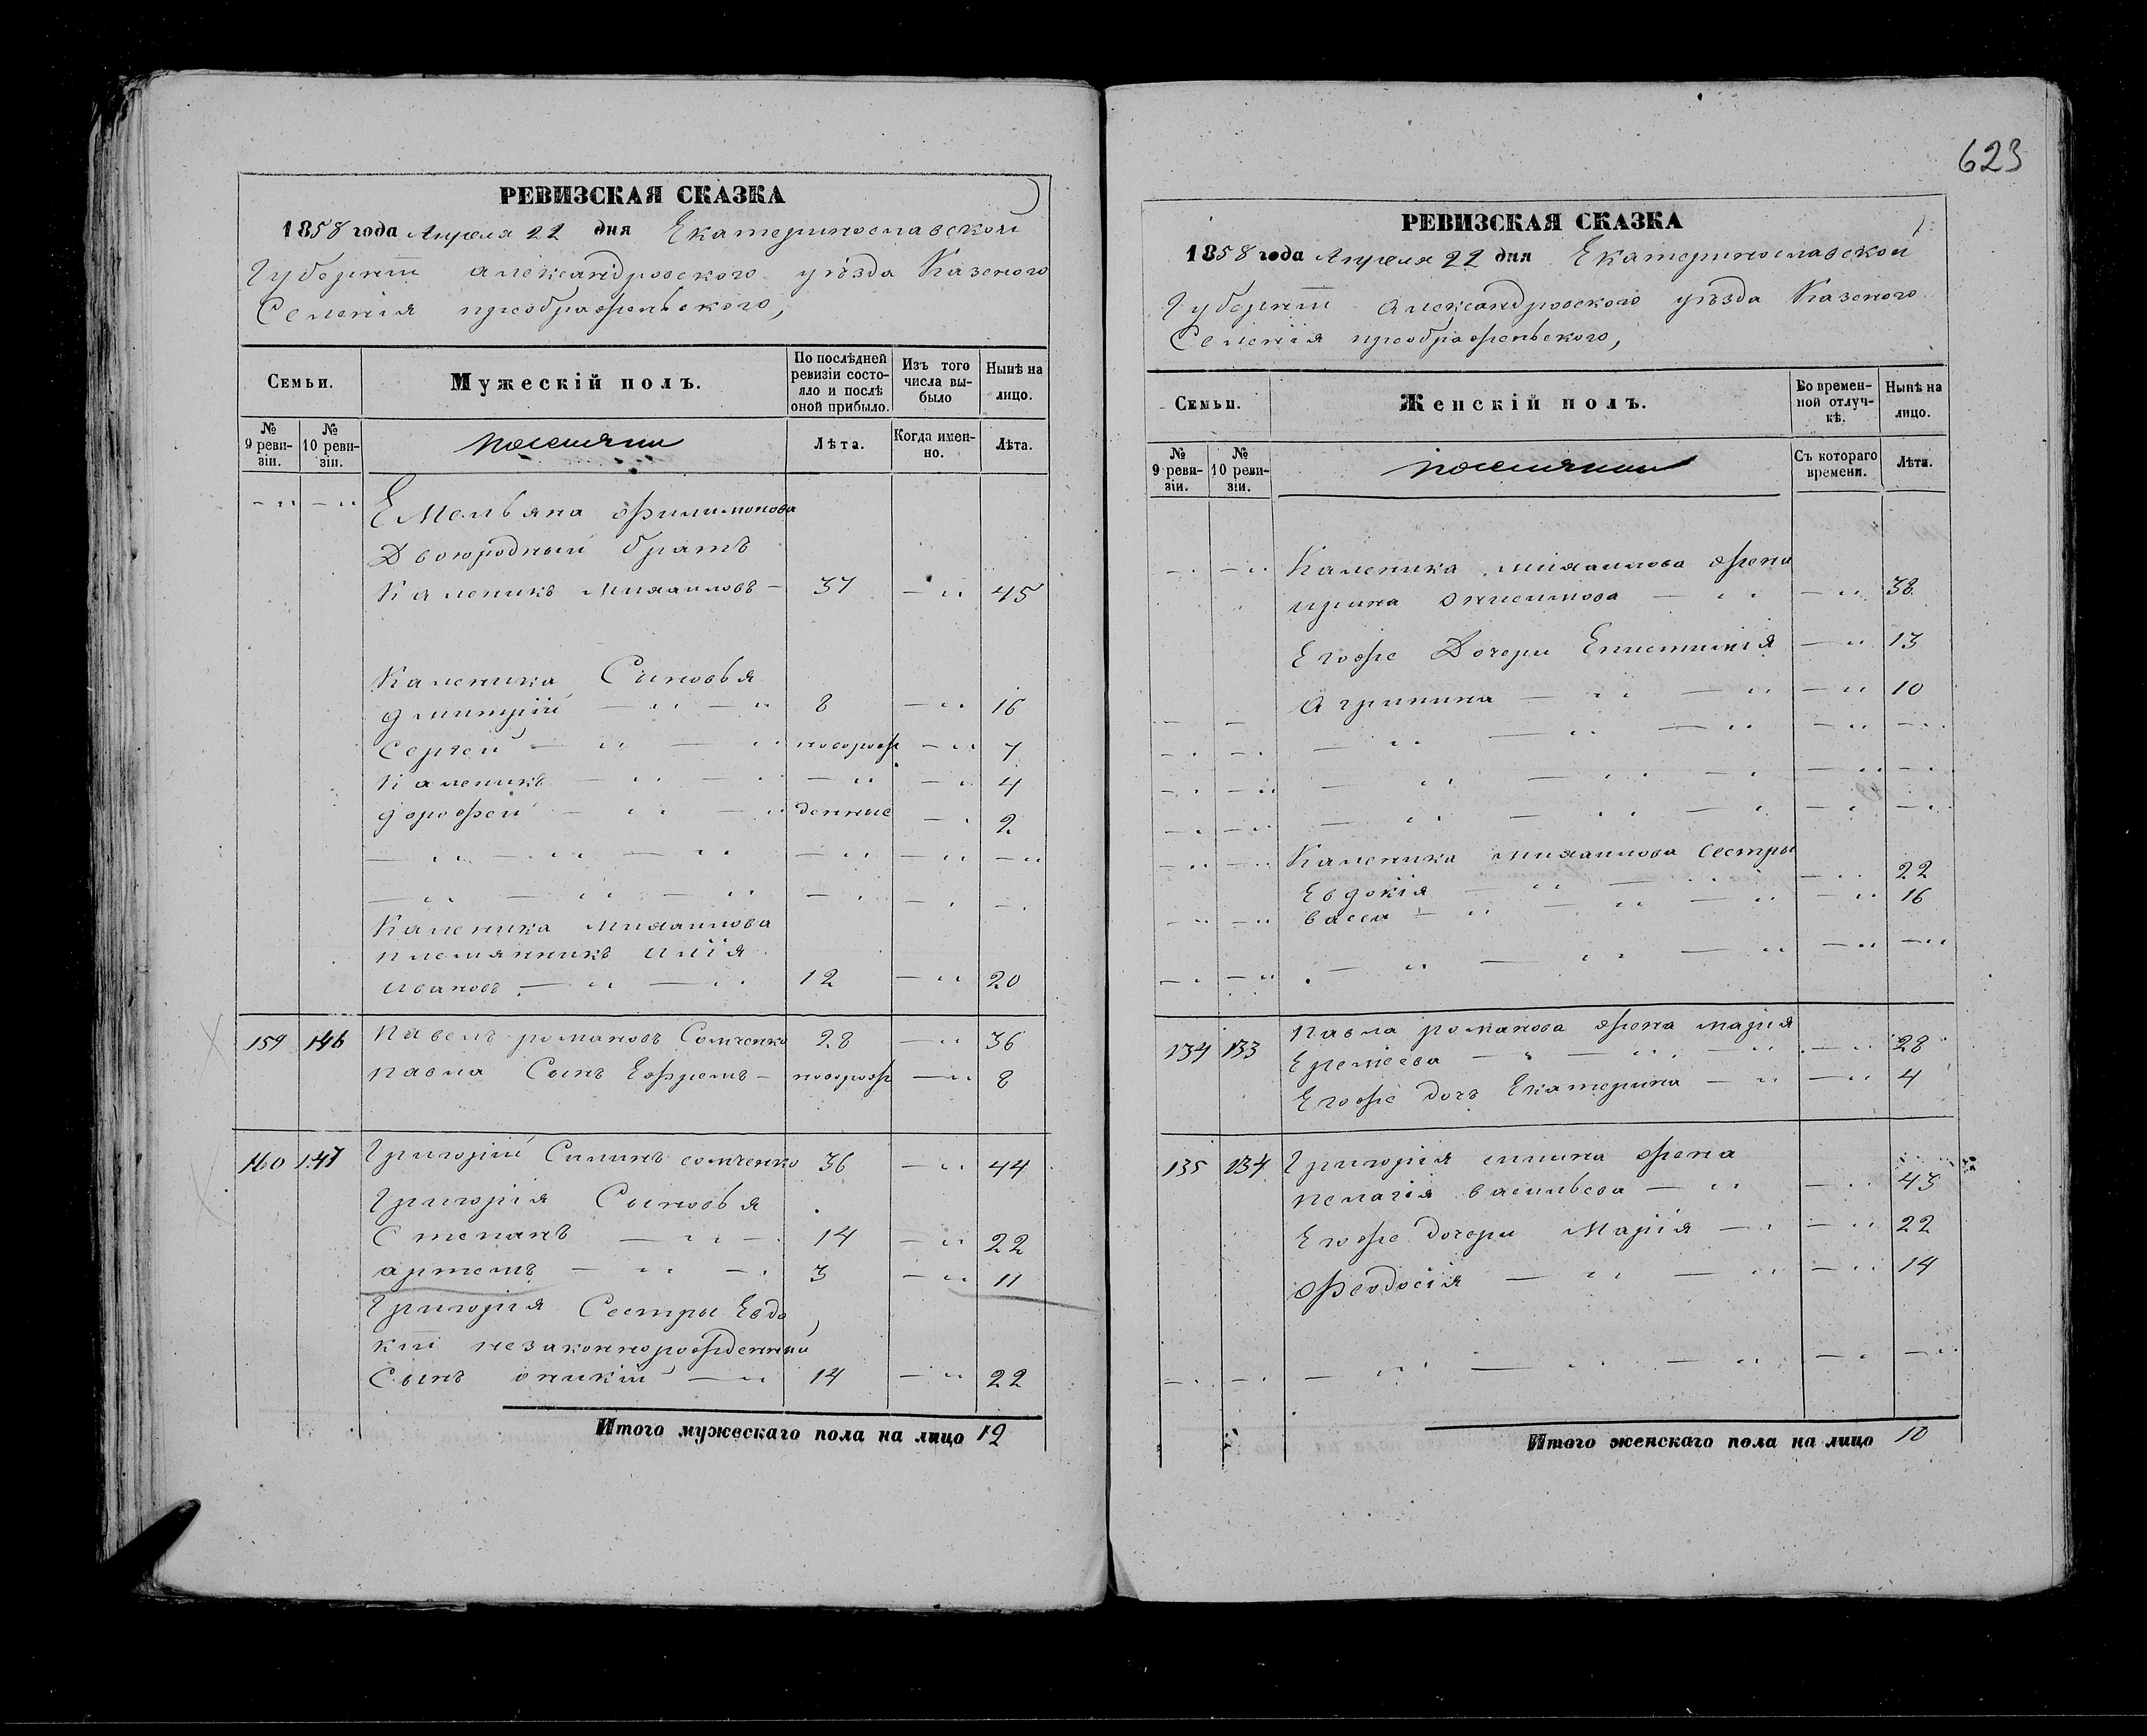 623
РЕВИЗСКАЯ СКАЗКА
1858 года Апреля 22 дня Екатеринославской
Губерніи Александровского уѣзда Казеного
Селенія преображеньского,
Семьи.
Мужескій полъ.
По послѣдней ревизіи состояло и послѣ оной прибыло.
Изъ того числа выбыло
Нынѣ на лицо.
№ 9 ревизіи.
№ 10 ревизіи.
поселяни
Лѣта.
Когда именно.
Лѣта.
Емельяна Филимонова
Двоюродный братъ
Каленикъ Михаиловъ — 37 — 45
Каленика Сыновья
дмитрій — 8 — 16
Сергей — новорож — 7
Каленикъ — 4
дорофей — денные — 2
Каленика михаилова
племянникъ илія
ивановъ — 12 — 20
159 146 Павелъ романовъ Сомченко 28 — 36
павла Сынъ Ефремъ — новорож — 8
160 147 Григорій Силинъ сомченко 36 — 44
Григорія Сыновья
Степанъ — 14 — 22
артемъ — 3 — 11
Григорія Сестры Евдо
кіи незаконнорожденный
Сынъ оникій — 14 — 22
Итого мужескаго пола на лицо 12
РЕВИЗСКАЯ СКАЗКА
1858 года Апреля 22 дня Екатеринославской
Губерніи Александровского уѣзда Казеного
Селенія преображеньского,
Семьи.
Женскій полъ.
Во временной отлучкѣ.
Нынѣ на лицо.
№ 9 ревизіи.
№ 10 ревизіи.
поселянки
Съ котораго времени.
Лѣта.
Каленика михаилова жена
ирина Онисимова — 38
Егоже Дочери Епистимія — 13
Агрипина — 10
Каленика михаилова Сестры
Евдокія — 22
васса — 16
134 133 Павла романова жена марія
Еремѣева — 28
Егоже дочь Екатерина — 4
135 134 Григорія силина жена
пелагія васильева — 43
Егоже дочери Марія — 22
Феодосія — 14
Итого женскаго пола на лицо 10